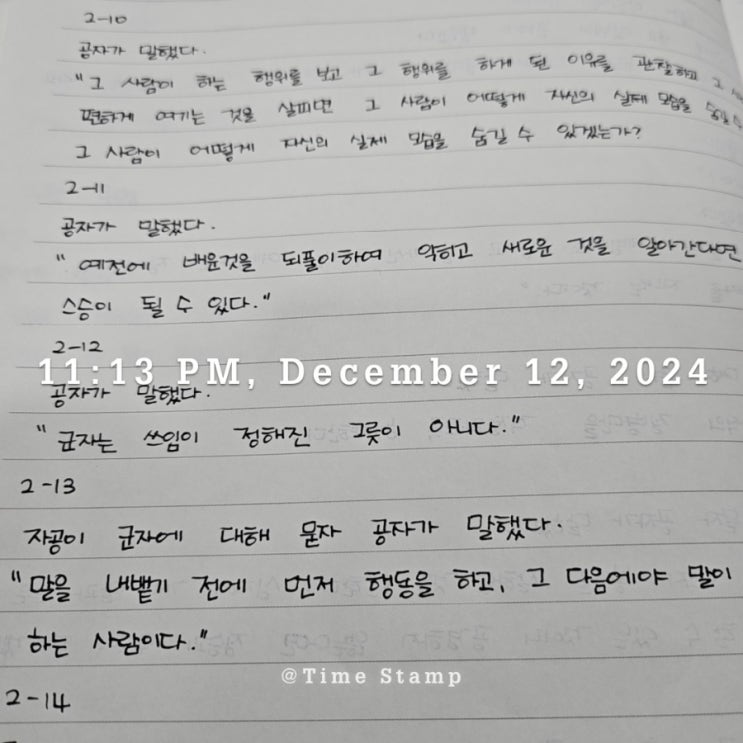 2-10
공자가 말했다.
"그 사람이 하는 행위를 보고 그 행위를 하게 된 이유를 관찰하고 그
편하게 여기는 것을 살피면 그 사람이 어떻게 자신의 실제 모습을 숨길 수
그 사람이 어떻게 자신의 실제 모습을 숨길 수 있겠는가?
2-11
공자가 말했다.
"예전에 배운것을 되풀이하여 익히고 새로운 것을 알아간다면
스승이 될 수 있다."
2-12
11:13 PM, December 12, 2024
공자가 말했다.
"군자는 쓰임이 정해진 그릇이 아니다."
2-13
자공이 군자에 대해 묻자 공자가 말했다.
"말을 내뱉기 전에 먼저 행동을 하고, 그 다음에야 말이
하는 사람이다."
@Time Stamp
2-14